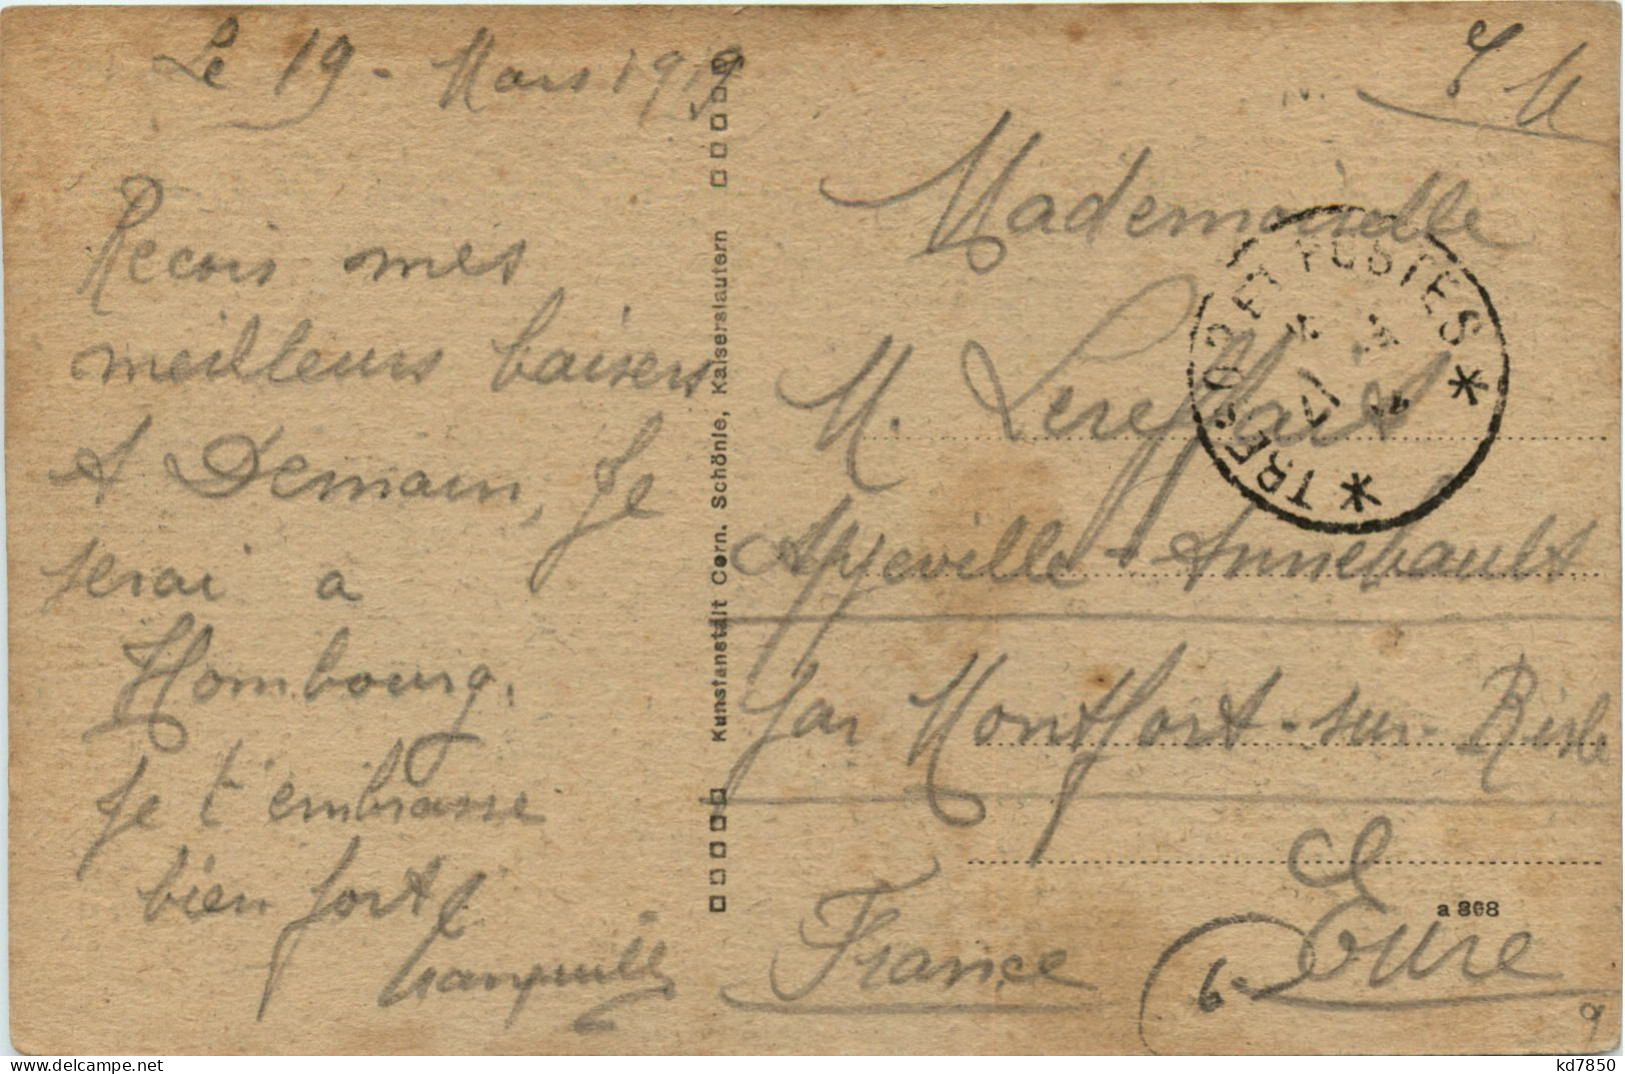 Le 19 - Mars 1919
Recois mes
meilleurs baisers
A Demain, Je
serai a
Hombourg.
Je t'embrasse
bien fort
tranquille
Kunstanstalt Corn. Schönle, Kaiserslautern
F M
Mademoiselle
M.
Appeville-Annebault
par Montfort-sur-Risle
Eure
France
TRESOR ET POSTES
a 868
6
kd7850